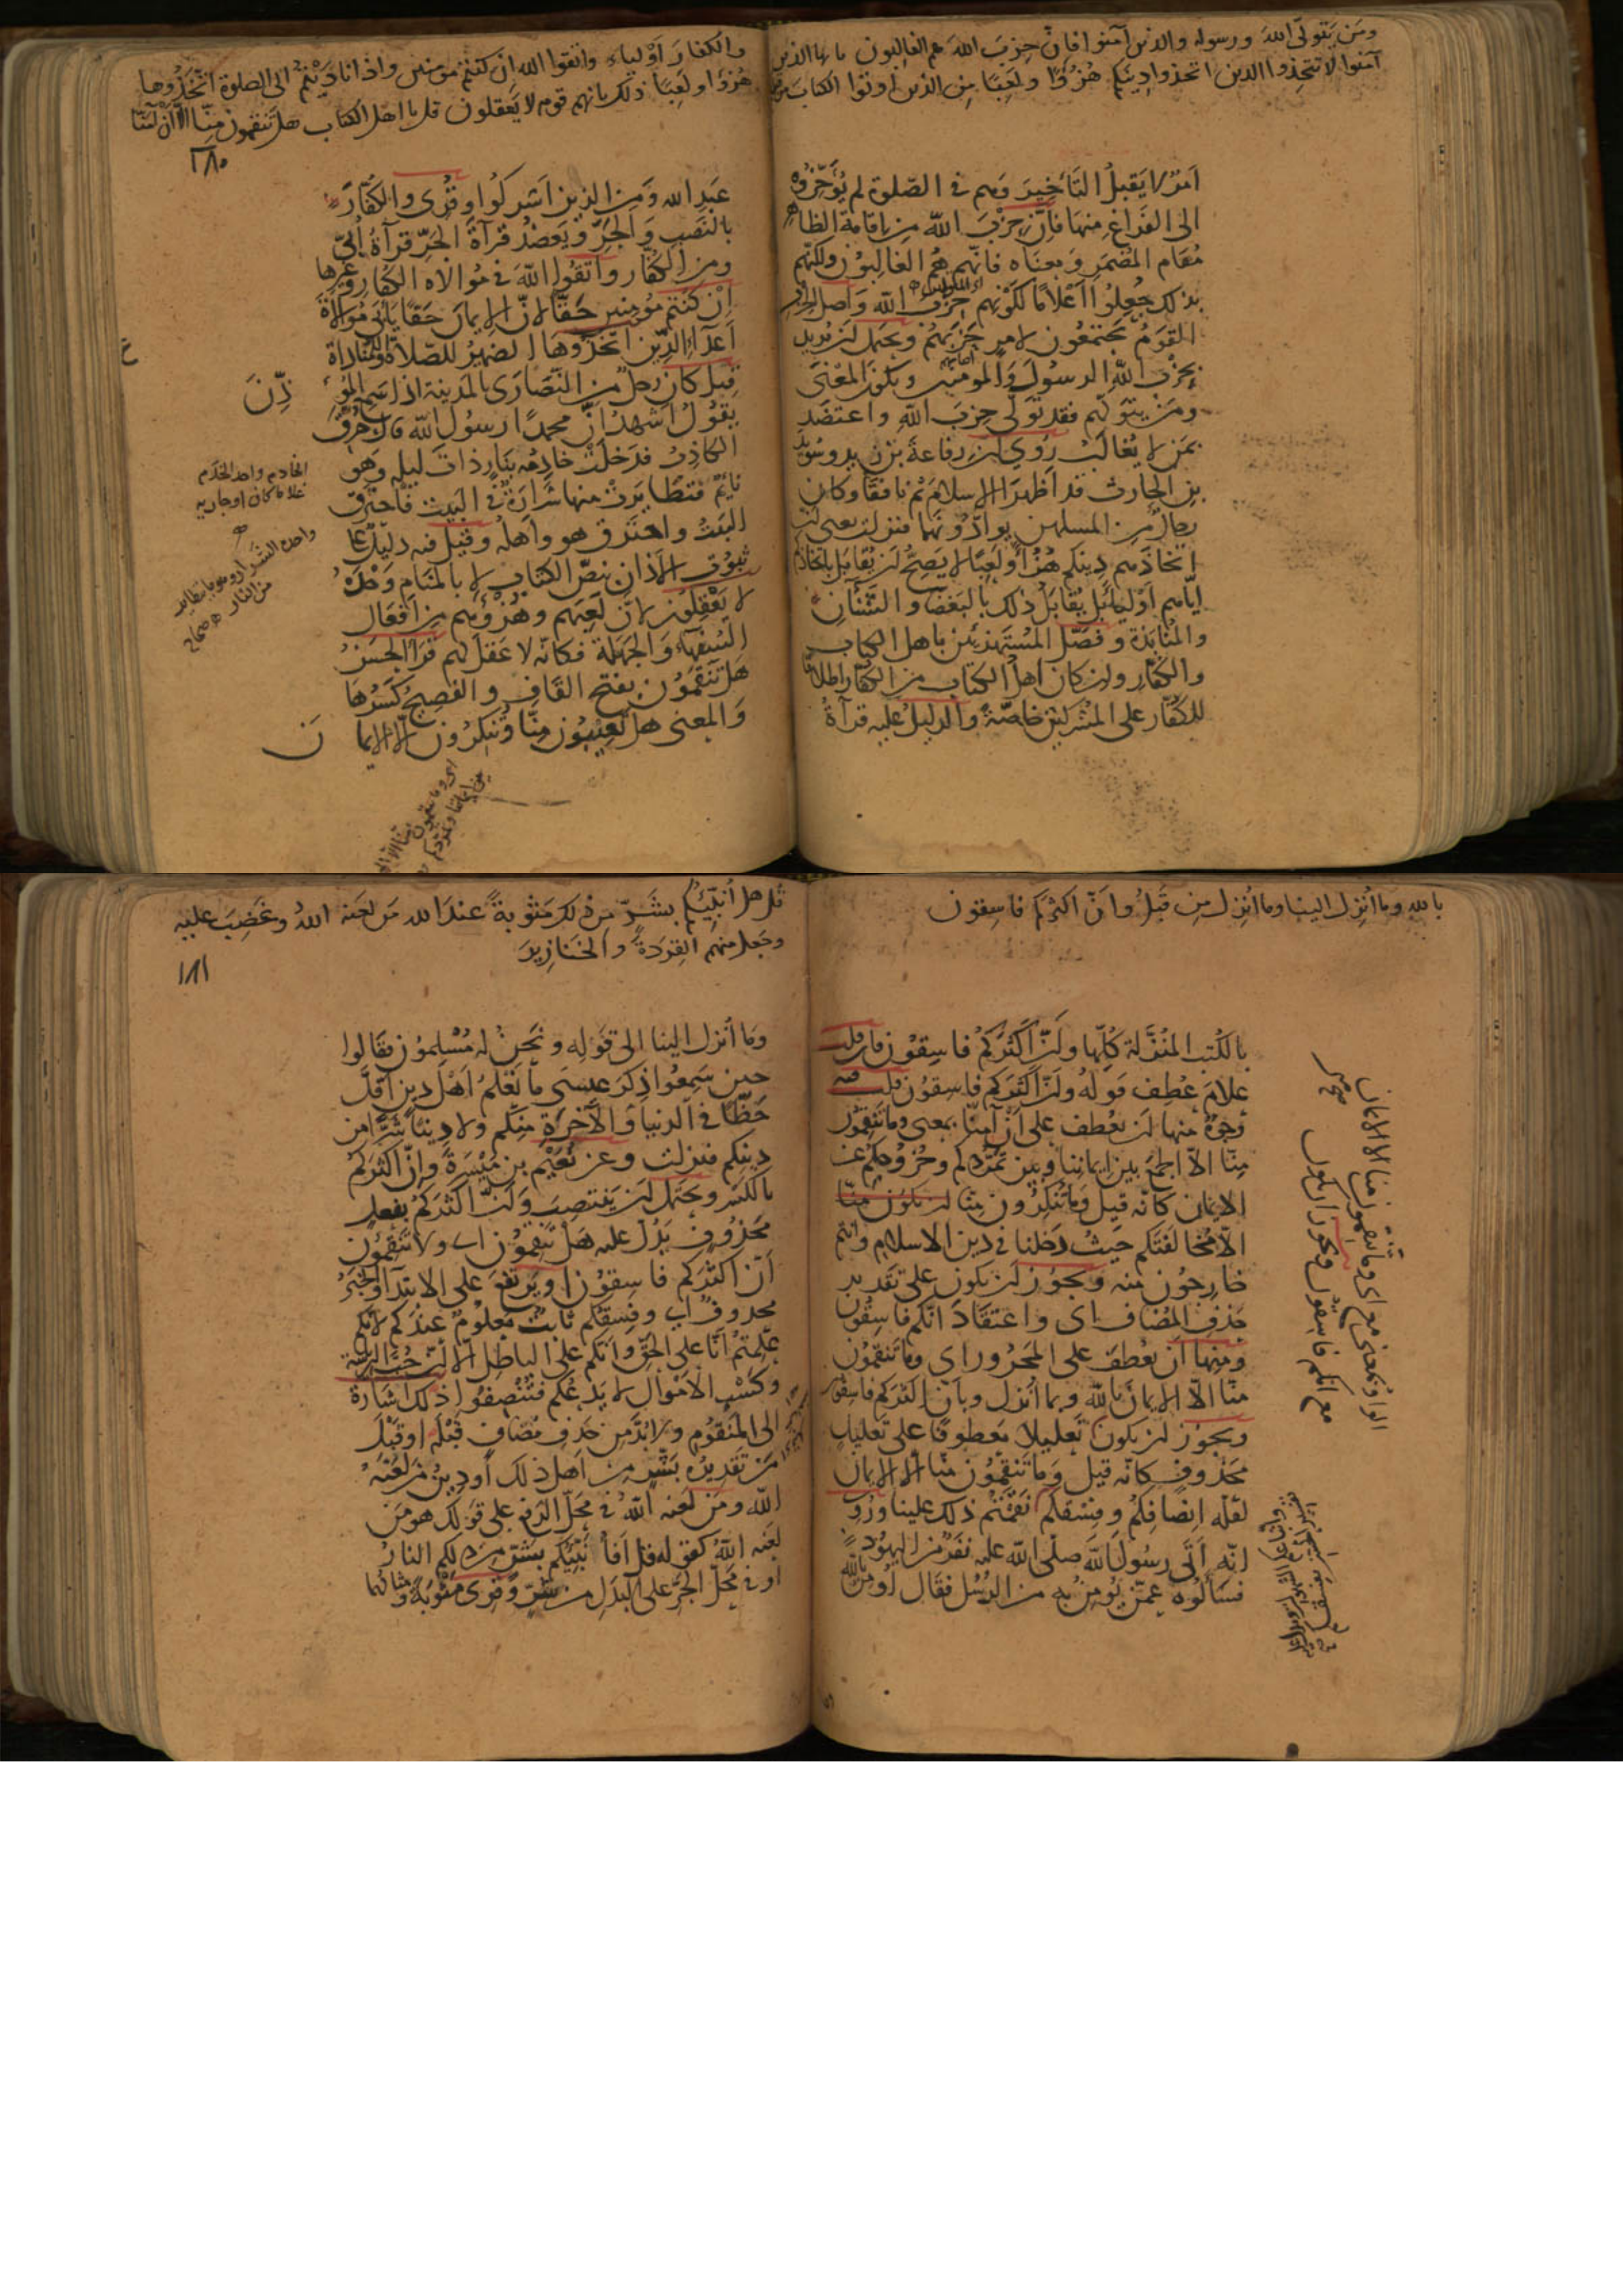 ومَن يَتولّى اللهَ ورسوله والذين آمنوا فانّ حِزبَ اللهَ هم الغالبون يا ايها الذين
آمنوا لا تتّخِذوا الذين اتخذوا دِينكم هُزُوًا ولَعِبًا مِن الذين أُوتوا الكتاب من قبلكم
امرٌ لا يَقبلُ التَأخِيرَ وهم في الصّلوة لم يُؤَخِّرُوه
الى الفَراغِ منها فاِنّ حِزْبَ اللّه من اقامة الظاهر
مُقام المُضمَر ومعناه فانّهم هُم الغالِبوُن ولكنّهم
بذلك جُعِلُوا اَعْلامًا لكَونهم حِزْبَ اللّه وَاصل الحزب
القَومُ يجتمعُون لامرٍ حَزَبَهُم ويحتمل ان يُريد
بحِزب اللّه الرسُولَ والمومنين ويكون المَعْنَى
ومَن يَتَولّهم فقد تَولّى حِزبَ اللّه واعتَضَد
بمَن لا يُغالَبُ رُوي ان رِفاعةَ بن زيد وسُوَيد
بن الحارث قد اَظهَرا الاسلامَ ثم نافقا وكان
رجالٌ من المسلمين يوادّونَهما فنزلت يعنى ان
اتخاذَهم دِينكم هُزُؤًا ولَعِبًا لا يَصِحُّ ان يُقابَل باتخاذكم
ايّاهم اَوْلِياء بَل يُقابَلُ ذلك بالبَغضاء والشَّنَآنِ
والمُنابَذة وفصّل المُسْتَهزئين باهل الكتاب
والكفّار وان كان اهلُ الكتاب من الكفّار اطلاقًا
للكفّار على المُشركين خاصّةً والدليلُ عليه قرآءةُ
والكفارَ اَوْلياء واتقوا الله اِن كنتم مومنين واذا نادَيْتُم الى الصلوة اتَّخَذُوها
هُزؤًا ولَعِبًا ذلك بانهم قوم لا يَعقلون قل يا اهل الكتاب هل تَنقمون مِنّا الّا اَنْ آمَنّا
١٨٠
عَبدِ الله ومن الذين اَشركُوا وقُرِى والكفّارَ
بالنَصب والجَرّ ويَعضُد قرآءةَ الجَرِّ قرآءةُ اُبيّ
ومن الكُفّار واتقُوا اللّهَ في مُوالاه الكفّار وغيرها
اِنْ كنتم مُومنِين حَقًّا لانّ الايمان حَقًّا يأبَى مُوالاةَ
اَعدآءِ الدِّين اتخَذُوها الضميرُ للصّلاة او للمُناداة
قيل كان رجلٌ من النّصَارَى بالمدينة اذا سَمِع المُوَ
ذِّنَ
يقُولُ اَشهدُ اَنّ محمدًا رسُولُ اللّه قال حُرّق
الكاذِبُ فدَخلَتْ خادِمُه بنَارٍ ذاتَ ليلهٍ وَهو
نائم فتَطَايَرتْ منها شَرارَةٌ في البَيت فاحترق
البَيتُ واحتَرق هو واَهلُه وقيل فيه دليلٌ على
ثبُوت الاذان بنصّ الكتاب لا بالمنَام وَحْدَهُ
لا يَعْقِلُون لانّ لَعِبَهم وهُزْؤَهم من اَفعَال
السُفهآء والجَهَلة فكانّه لا عَقلَ لهم قرأ الحسَنُ
هَل تَنقَمُون بفتح القَاف والفصِيحُ كَسْرُهَا
وَالمعنى هل تعِيبُون مِنّا وتُنكِرُون الّا الايما
نَ
الخادم واحد الخَدَم
غلاما كان او جارية
بالله وما أُنزِل الينا وما اُنزِل مِن قَبلُ وانّ اكثركم فاسِقون
بالكُتب المُنَزَّلة كلّها وانّ اكثركُم فاسِقوُن فان قلت
علامَ عُطِف قَولهُ وانّ اكثرَكم فاسقُون قلت فيه
وُجوُهٌ منها ان يعُطف على اَنْ آمنّا بمعنى وما تنقمُون
مِنّا الّا الجمعَ بين ايماننا وبين تمرّدِكم وخُروُجِكم عَن
الايمان كانّه قيل وَما تُنكِرُون مِنّا
الّا مُخالَفتَكم حيثُ دَخلنا في دين الاسلام وانتم
خارِجُون منه ويجوُز ان يكون على تقدير
حَذفِ المُضاف اى واعتقادَ انّكم فاسِقُون
ومِنها اَن يعُطفَ على المَجرُور اى وما تَنقمُون
مِنّا الّا الايمانَ بالله وبما اُنزل وبانّ اكثركم فاسقون
ويجوُز ان يكون تعليلًا مَعطوفًا على تعليلٍ
محَذوفٍ كانّه قيل وَما تَنقِمُون مِنّا الّا الايمان
لقلّه انصَافِكُم وفِسْقكم نقَمْتُم ذلك علينا ورُوِ
انّه اَتَى رسُولَ اللّه صلّى اللّه عليه نَفَرٌ من اليهُود
فسَألُوه عمّن يُومِنُ به من الرُسُل فقَال اُومنُ باللّه
الواو بمعنى مع اى وما تنقمون منّا الّا الايمان
مع انّكم فاسِقُون
قُل هل اُنبّئُكم بِشَرٍّ مِن ذلك مَثوُبةً عند الله مَن لعَنه اللهُ وغَضِبَ عليه
وجعل منهم القِردَةَ والخَنازِيرَ
١٨١
ومَا اُنزل الينا الى قَولِه ونَحنُ له مُسْلِموُن فقَالوا
حين سَمِعُوا ذِكرَ عِيسَى ما نَعْلمُ اَهْلَ دينٍ اَقلَّ
حَظًّا في الدنيا وَالآخرةِ مِنكم ولا دِينًا شَرًّا من
دِينكم فنزلت وعن نُعَيْم بن مَيْسَرةَ وانّ اكثركُم
بالكَسْر ويحتَمل ان يَنتصِبَ وَانّ اكثرَكُم بفعلٍ
مَحذُوفٍ يَدُلّ عليه هَل تنقِمُون اى ولا تنقِمُون
انّ اكثركم فاسِقوُن او يرتفِعَ على الابتدآء والخَبَرُ
محذوفٌ اى وفِسقكم ثابتٌ مَعلومٌ عِندكم لانّكم
عَلِمتمُ انّا على الحَقّ وانّكم على الباطِل الّا انّ حُبَّ الرئاسة
وكَسْبِ الاَمْوال لا يَدَعُكم فتُنْصِفُوا ذلك اشارةٌ
الى المَنقوُمِ ولا بُدّ مِن حَذفِ مُضافٍ قبْله او قَبْلَ
مَن تقديرُه بشَرٍّ من اَهلِ ذلك اَو دِينُ مَن لعَنَهُ
اللّه ومَن لعَنه اللّهُ في مَحَلّ الرفع على قَولك هو مَن
لعَنه اللّهُ كقوله قل اَفاُنَبّئكم بِشَرٍّ من ذلكم النارُ
او في مَحلّ الجَرّ على البَدَلِ من شَرٍّ وقُرِى مَثوبَةً